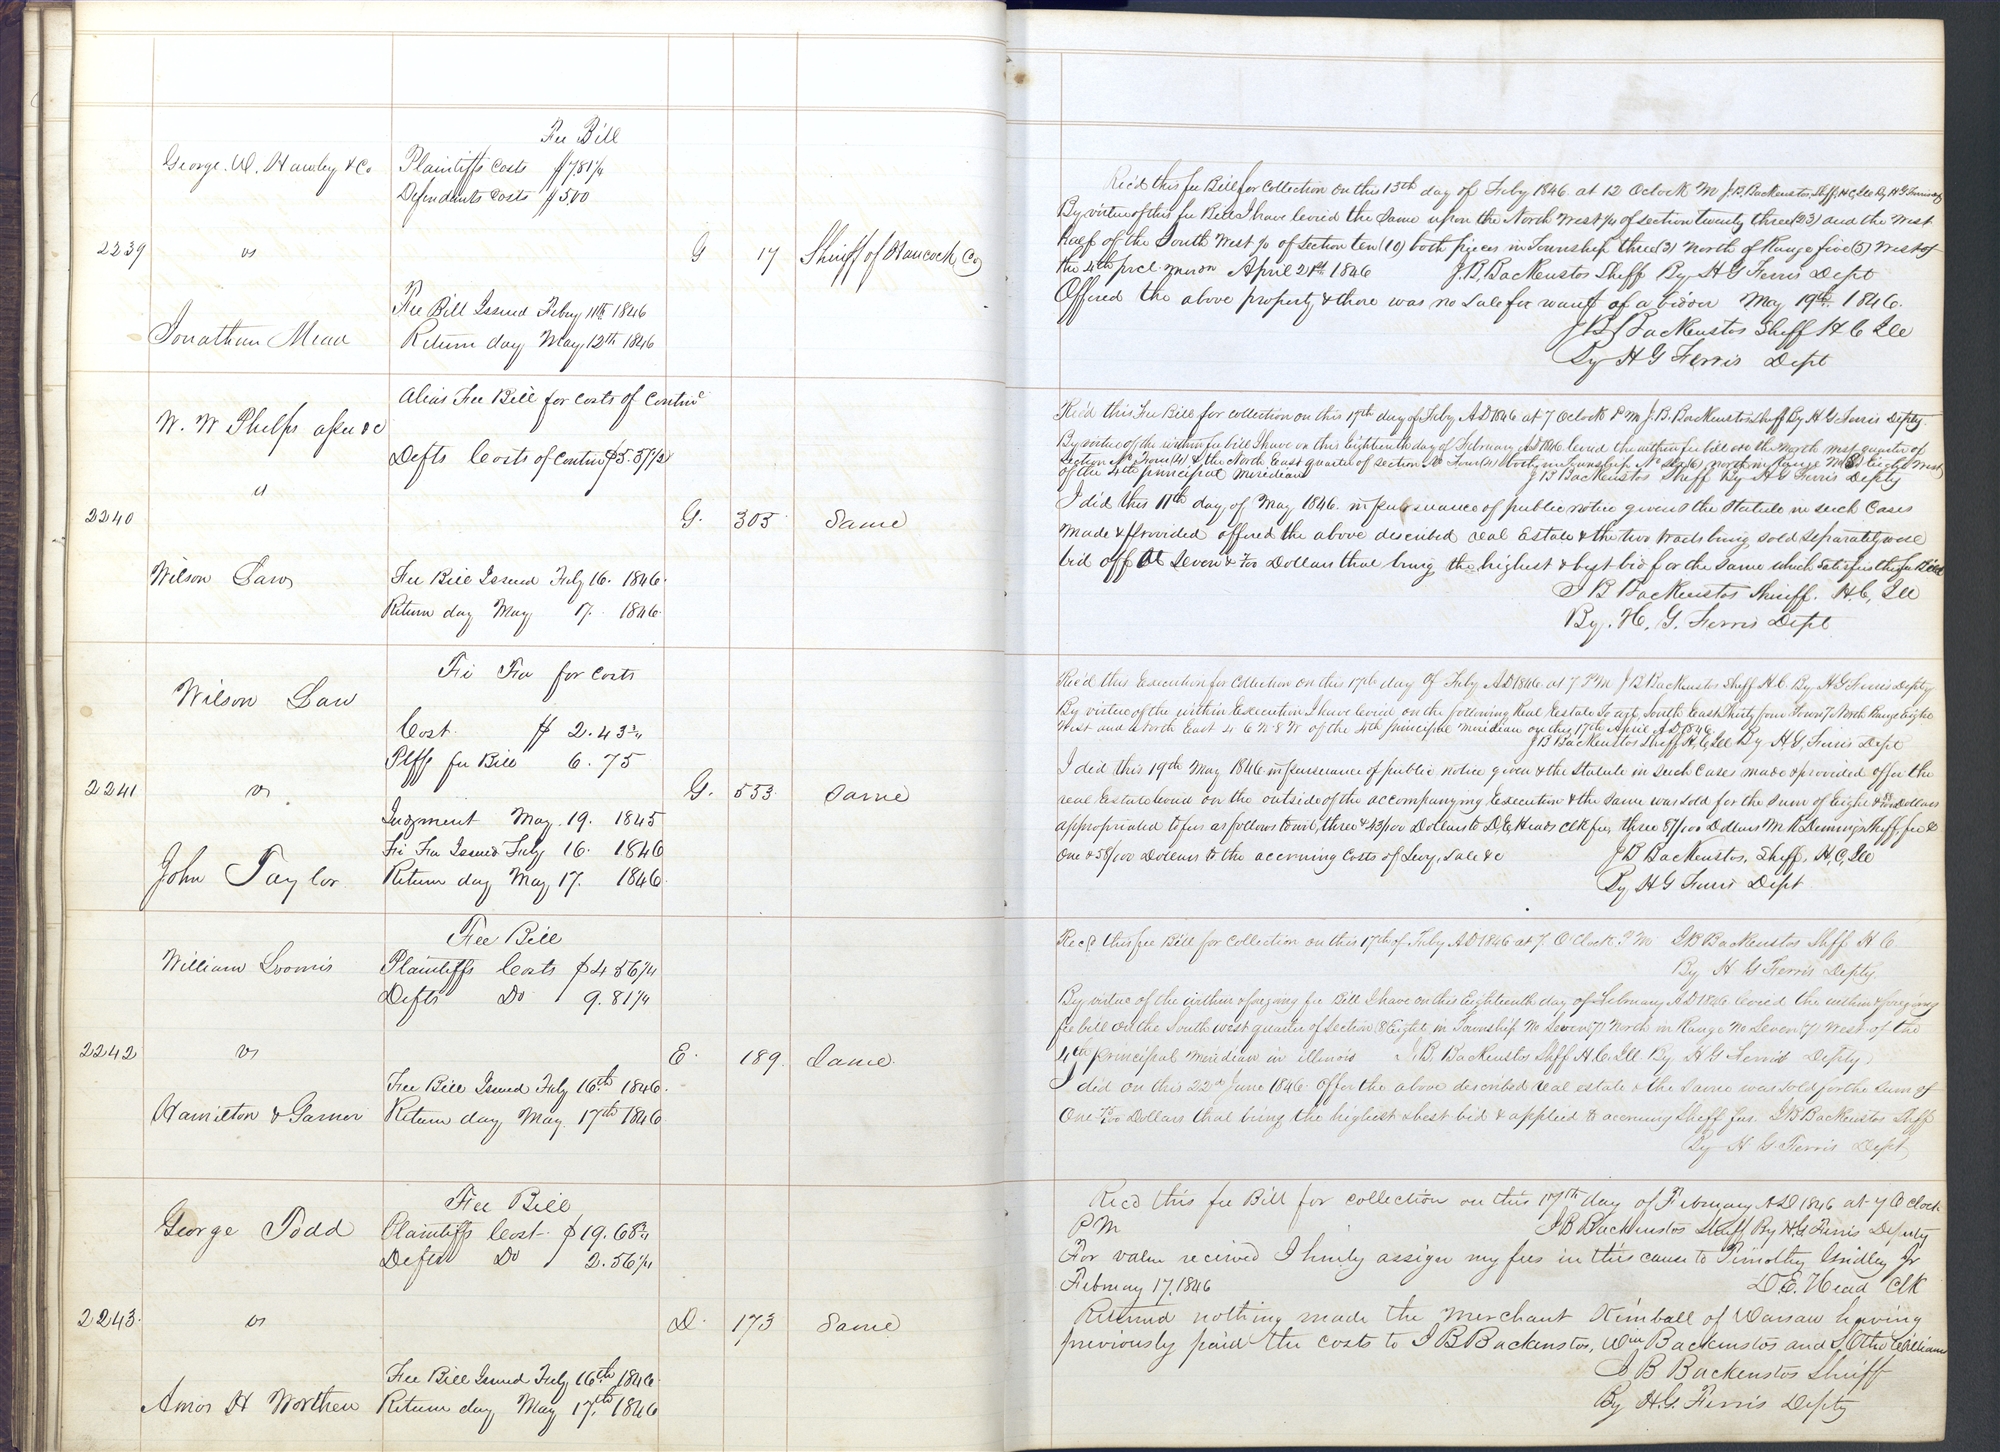 Fee Bill
George. W. Hawley & Co
Plaintiffs Costs $7.81¼
Defendants Costs $5.00
2239
vs
G
17
Sheriff of Hancock Co
Fee Bill Issued Feby 11th 1846
Jonathan Mead
Return day May 12th 1846
Alias Fee Bill for costs of Contine
W. W Phelps
Defts Costs of Contin $5.37½
2240
G.
303
Same
Wilson Law
Fee Bill Issued Feby 16. 1846.
Return day May 17. 1846
Fi Fa for costs
Wilson Law
Cost. $ 2.43¾
Plffs fee Bill 6.75
2241
vs
G.
553
Same
Judgment May. 19. 1845
Fi Fa Issued Feby 16. 1846
John Taylor
Return day May 17. 1846
Fee Bill
William Loomis
Plaintiffs Costs $4 56¼
Defts Do 9.81¼
2242
vs
E.
189
Same
Fee Bill Issued Feby 16th 1846.
Hamilton & Garner
Return day May 17th 1846
Fee Bill
George Todd
Plaintiffs Cost $19.68¾
Defts Do 2.56¼
2243
vs
D.
173
Same
Fee Bill Issued Feby 16th 1846
Amos H Worthen
Return day May 17th 1846
Rec'd this fee Bill for collection on this 13th day of Feby 1846 at 12 Oclock M J.B. Backenstos, Shff. H.C. Ill By H G Ferris
By virtue of this fee Bill I have levied the same upon the North West ¼ of section twenty three (23) and the West
half of the South West ¼ of Section ten (10) both pieces in Township three (3) North of Range five (5) West of
the 4th prcl meron April 21st 1846 J.B. Backenstos Sheff By H G Ferris Dept
Offered the above property & there was no sale for want of a bidder May 19th 1846.
J B Backenstos Sheff H C Ill
By H G Ferris Dept
Rec'd this Fee Bill for collection on this 17th day of Feby AD 1846 at 7 Oclock P M J. B. Backenstos Sheff By H G Ferris Depty.
By virtue of the within fee bill I have on this Eighteenth day of February AD 1846 levied the within fee bill on the North west quarter of
Section No Four (4) & the North East quarter of section No Four (4) both in Township No Six (6) North in Range No (8) Eight West
of the 4th principal Meridian J B Backenstos Sheff By H G Ferris Depty
I did this 11th day of May 1846. in pursuance of public notice given & the Statute in such Cases
Made & Provided offered the above described real Estate & the two tracts being sold separately were
bid off at Seven & /100 Dollars that being the highest & best bid for the same which satisfies this fee Bill
J B Backenstos Sheriff. H.C, Ill
By. H. G. Ferris Dept.
Rec'd this Execution for Collection on this 17th day of Feby AD 1846 at 7 PM J B Backenstos Sheff H.C. By H G Ferris Depty
By virtue of the within Execution I have levied on the following Real Estate To wit, South East Thirty four Town 7 North Range Eight
West and North East 4 6 N 8 W of the 4th principal Meridian on this 17th April AD 1846
J B Backenstos Sheff H, C, Ill By H G, Ferris Dept
I did this 19th May 1846 in pursuance of public notice given & the Statute in such Cases made & provided offer the
real Estate levied on the outside of the accompanying Execution & the same was sold for the sum of Eight & 88/100 Dollars
appropriated to fees as follows to wit, three & 43/100 Dollars to D, E, Heads Clk fee, three 87/100 Dollars M. R. Deming Sheff, fee &
One & 58/100 Dollars to the accruing Costs of Levy, Sale &c J B Backenstos, Sheff. H, C, Ill
By H G Ferris Dept
Recd this fee Bill for collection on this 17th of Feby AD 1846 at 7. O Clock. P M J B Backenstos Shff H C
By H G Ferris Depty
By virtue of the within & foregoing fee Bill I have on this Eighteenth day of February AD 1846 levied the within & foregoing
fee bill on the South west quarter of section (8) Eight, in Township No Seven (7) North in Range No Seven (7) West of the
4th principal Meridian in illinois J. B. Backenstos Shff H.C. Ill By H G Ferris Depty
I did on this 22d June 1846 offer the above described real estate & the same was sold for the Sum of
One /100 Dollars that being the highest & best bid & applied to accruing Sheff fees. J B Backenstos Shff
By H G. Ferris Dept
Recd this fee Bill for collection on this 17th day of February AD 1846 at 7 O Clock
P M J B Backenstos Sheff By H. G. Ferris Deputy
For value received I hereby assign my fees in this cause to Timothy Gridley Jr
February 17. 1846 D. E. Head Clk
Returned nothing made the Merchant Kimball of Warsaw having
previously paid the costs to J B Backenstos, Wm Backenstos and S. Otho Williams
J B Backenstos Sheriff
By H. G. Ferris Depty